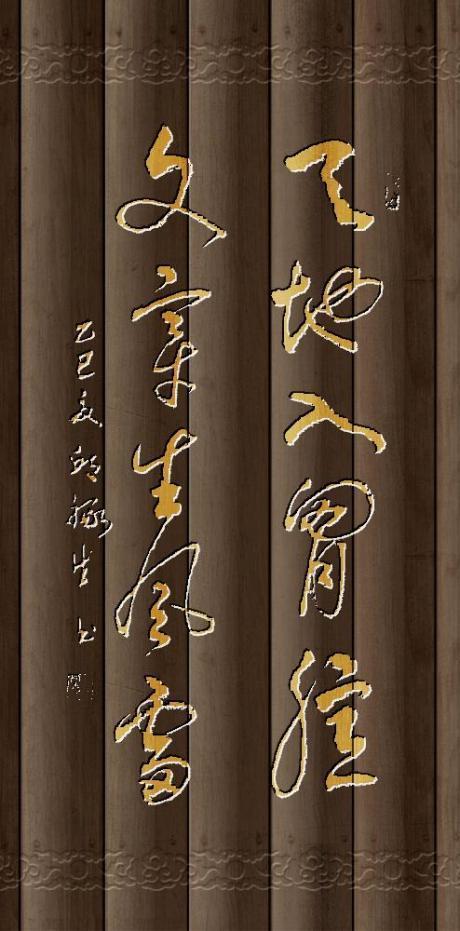 天地入胷臆
文章生風雷
乙巳夏生书